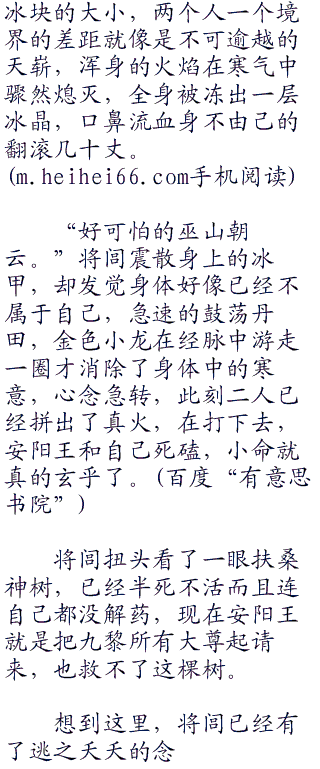 冰块的大小，两个人一个境
界的差距就像是不可逾越的
天崭，浑身的火焰在寒气中
骤然熄灭，全身被冻出一层
冰晶，口鼻流血身不由己的
翻滚几十丈。
(m.heihei66.com手机阅读)
“好可怕的巫山朝
云。”将闾震散身上的冰
甲，却发觉身体好像已经不
属于自己，急速的鼓荡丹
田，金色小龙在经脉中游走
一圈才消除了身体中的寒
意，心念急转，此刻二人已
经拼出了真火，在打下去，
安阳王和自己死磕，小命就
真的玄乎了。(百度“有意思
书院”)
将闾扭头看了一眼扶桑
神树，已经半死不活而且连
自己都没解药，现在安阳王
就是把九黎所有大尊起请
来，也救不了这棵树。
想到这里，将闾已经有
了逃之夭夭的念